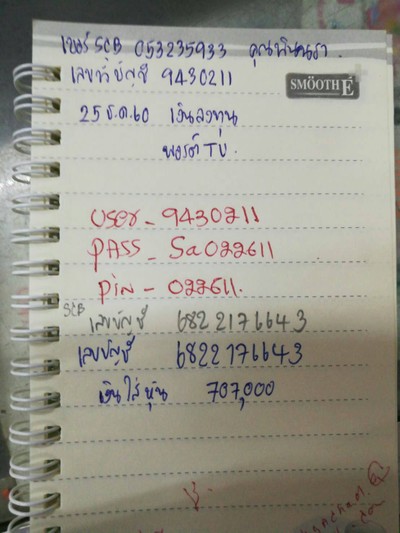 เบอร์ SCB 053235933
เลขที่บัญชี 9430211
SMÖOTH É
25 ธ.ค.60 เงินลงทุน
พอร์ต TU.
USER - 9430211
PASS - Sa022611
Pin - 022611.
SCB
เลขบัญชี 6822176643
เลขบัญชี 6822176643
เงินใส่หุ้น 707,000